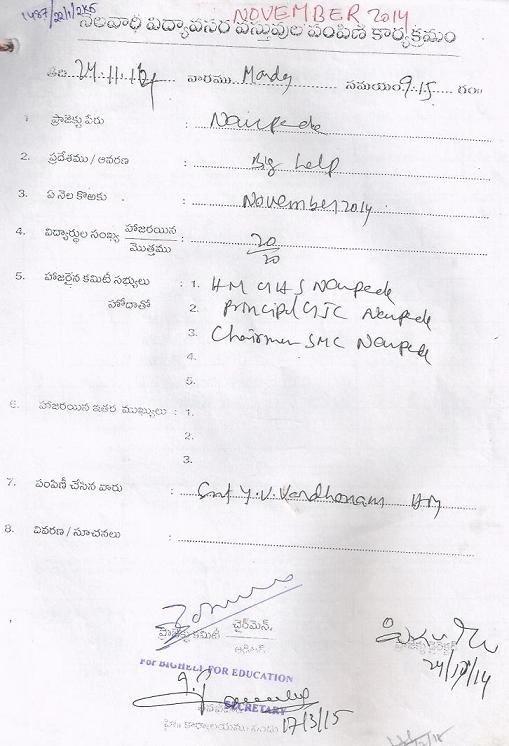 1487/22/1/285
NOVEMBER 2014
నెలవారి విద్యావసర వస్తువుల పంపిణి కార్యక్రమం
తేది 24.11.14 వారము Monday సమయం 9.15 గం॥
1. ప్రాజెక్టు పేరు : Naupada
2. ప్రదేశము / ఆవరణ : Big help
3. ఏ నెల కొఱకు : November 2014
4. విద్యార్ధుల సంఖ్య హాజరయిన / మొత్తము : 20/20
5. హాజరైన కమిటీ సభ్యులు : 1. HM GHS Naupada
హోదాతో 2. Principal GJC Naupada
3. Chairman SMC Naupada
4.
5.
6. హాజరయిన ఇతర ముఖ్యులు : 1.
2.
3.
7. పంపిణీ చేసిన వారు : Smt Y.V. Vardhanam HM
8. వివరణ / సూచనలు :
ప్రాజెక్టు కమిటీ ఛైర్‌మెన్.
ప్రాజెక్టు డైరెక్టర్
24/11/14
For BIGHELP FOR EDUCATION
SECRETARY
17/3/15